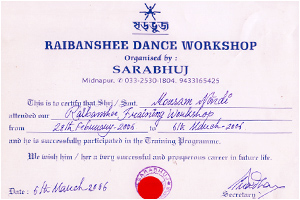 ষড়ভুজ
RAIBANSHEE DANCE WORKSHOP
Organised by :
SARABHUJ
Midnapur, ✆ 033-2530-1804, 9433165425
This is to certify that Shri / Smt. Monsam Nandi
attended our Raibanshee Training Workshop
from 28th February-2006 to 6th March-2006
and he is successfully participated in the Training Programme.
We wish him / her a very successful and prosperous career in future life.
Date : 6th March 2006
Secretary
SARABHUJ